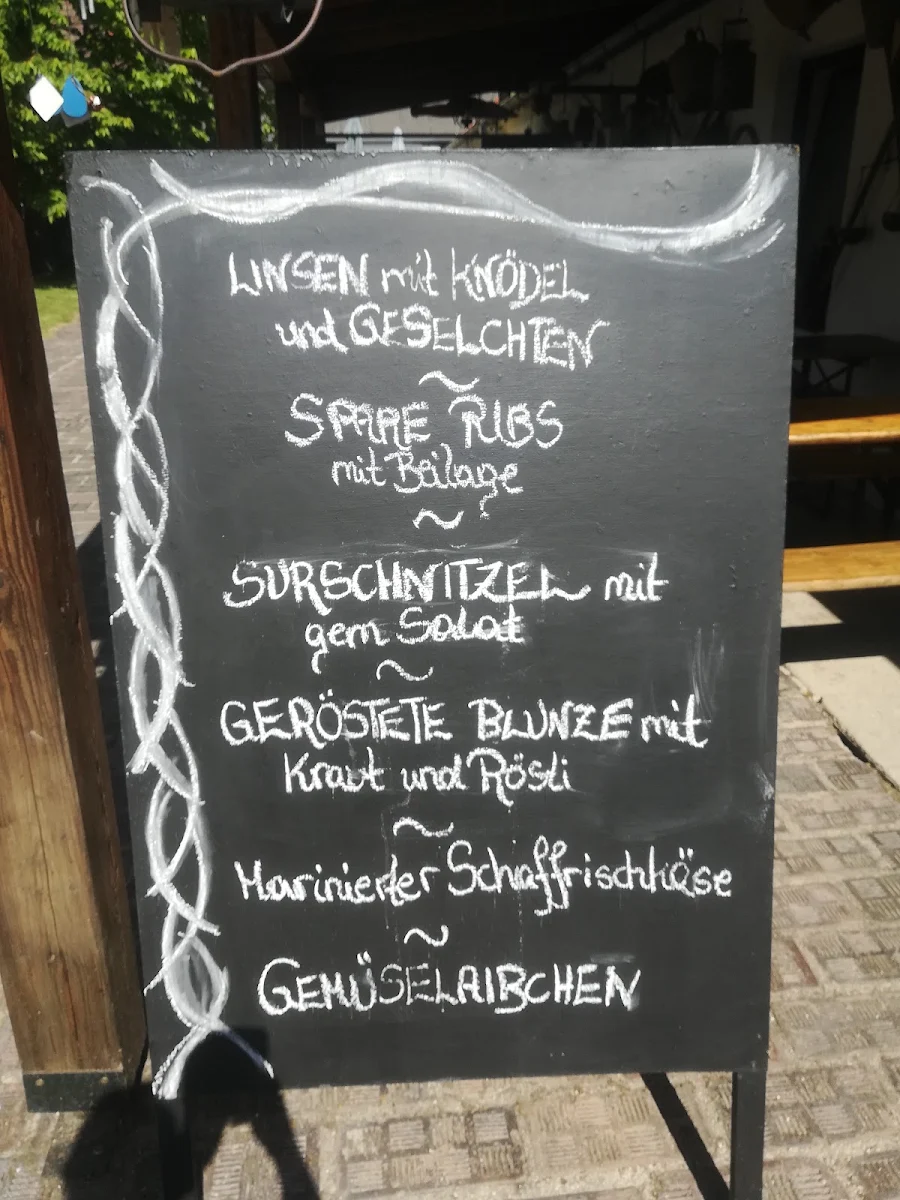 LINSEN mit KNÖDEL
und GESELCHTEN
~
SPARE RIBS
mit Beilage
~
SURSCHNITZEL mit
gem Salat
~
GERÖSTETE BLUNZE mit
Kraut und Rösti
~
Marinierter Schaffrischkäse
~
GEMÜSELAIBCHEN